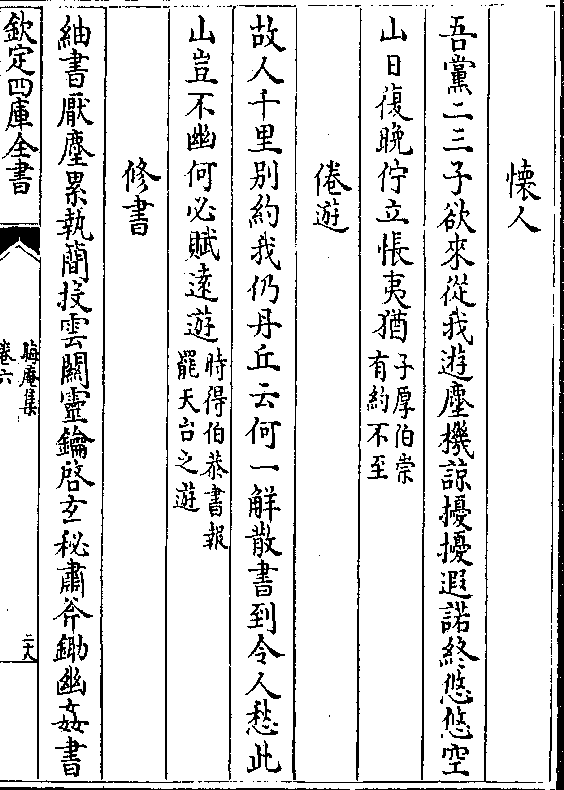 懷人
吾黨二三子欲來從我遊塵機諒擾擾遐諾終悠悠空
山日復晚佇立悵夷猶子厚伯崇
有約不至
倦遊
故人千里别約我仍丹丘云何一解散書到令人愁此
山豈不幽何必賦遠遊時得伯恭書報
罷天台之遊
修書
紬書厭塵累執簡投雲關靈鑰啓玄秘肅斧鋤幽姦書
欽定四庫全書
晦庵集
卷六
二八